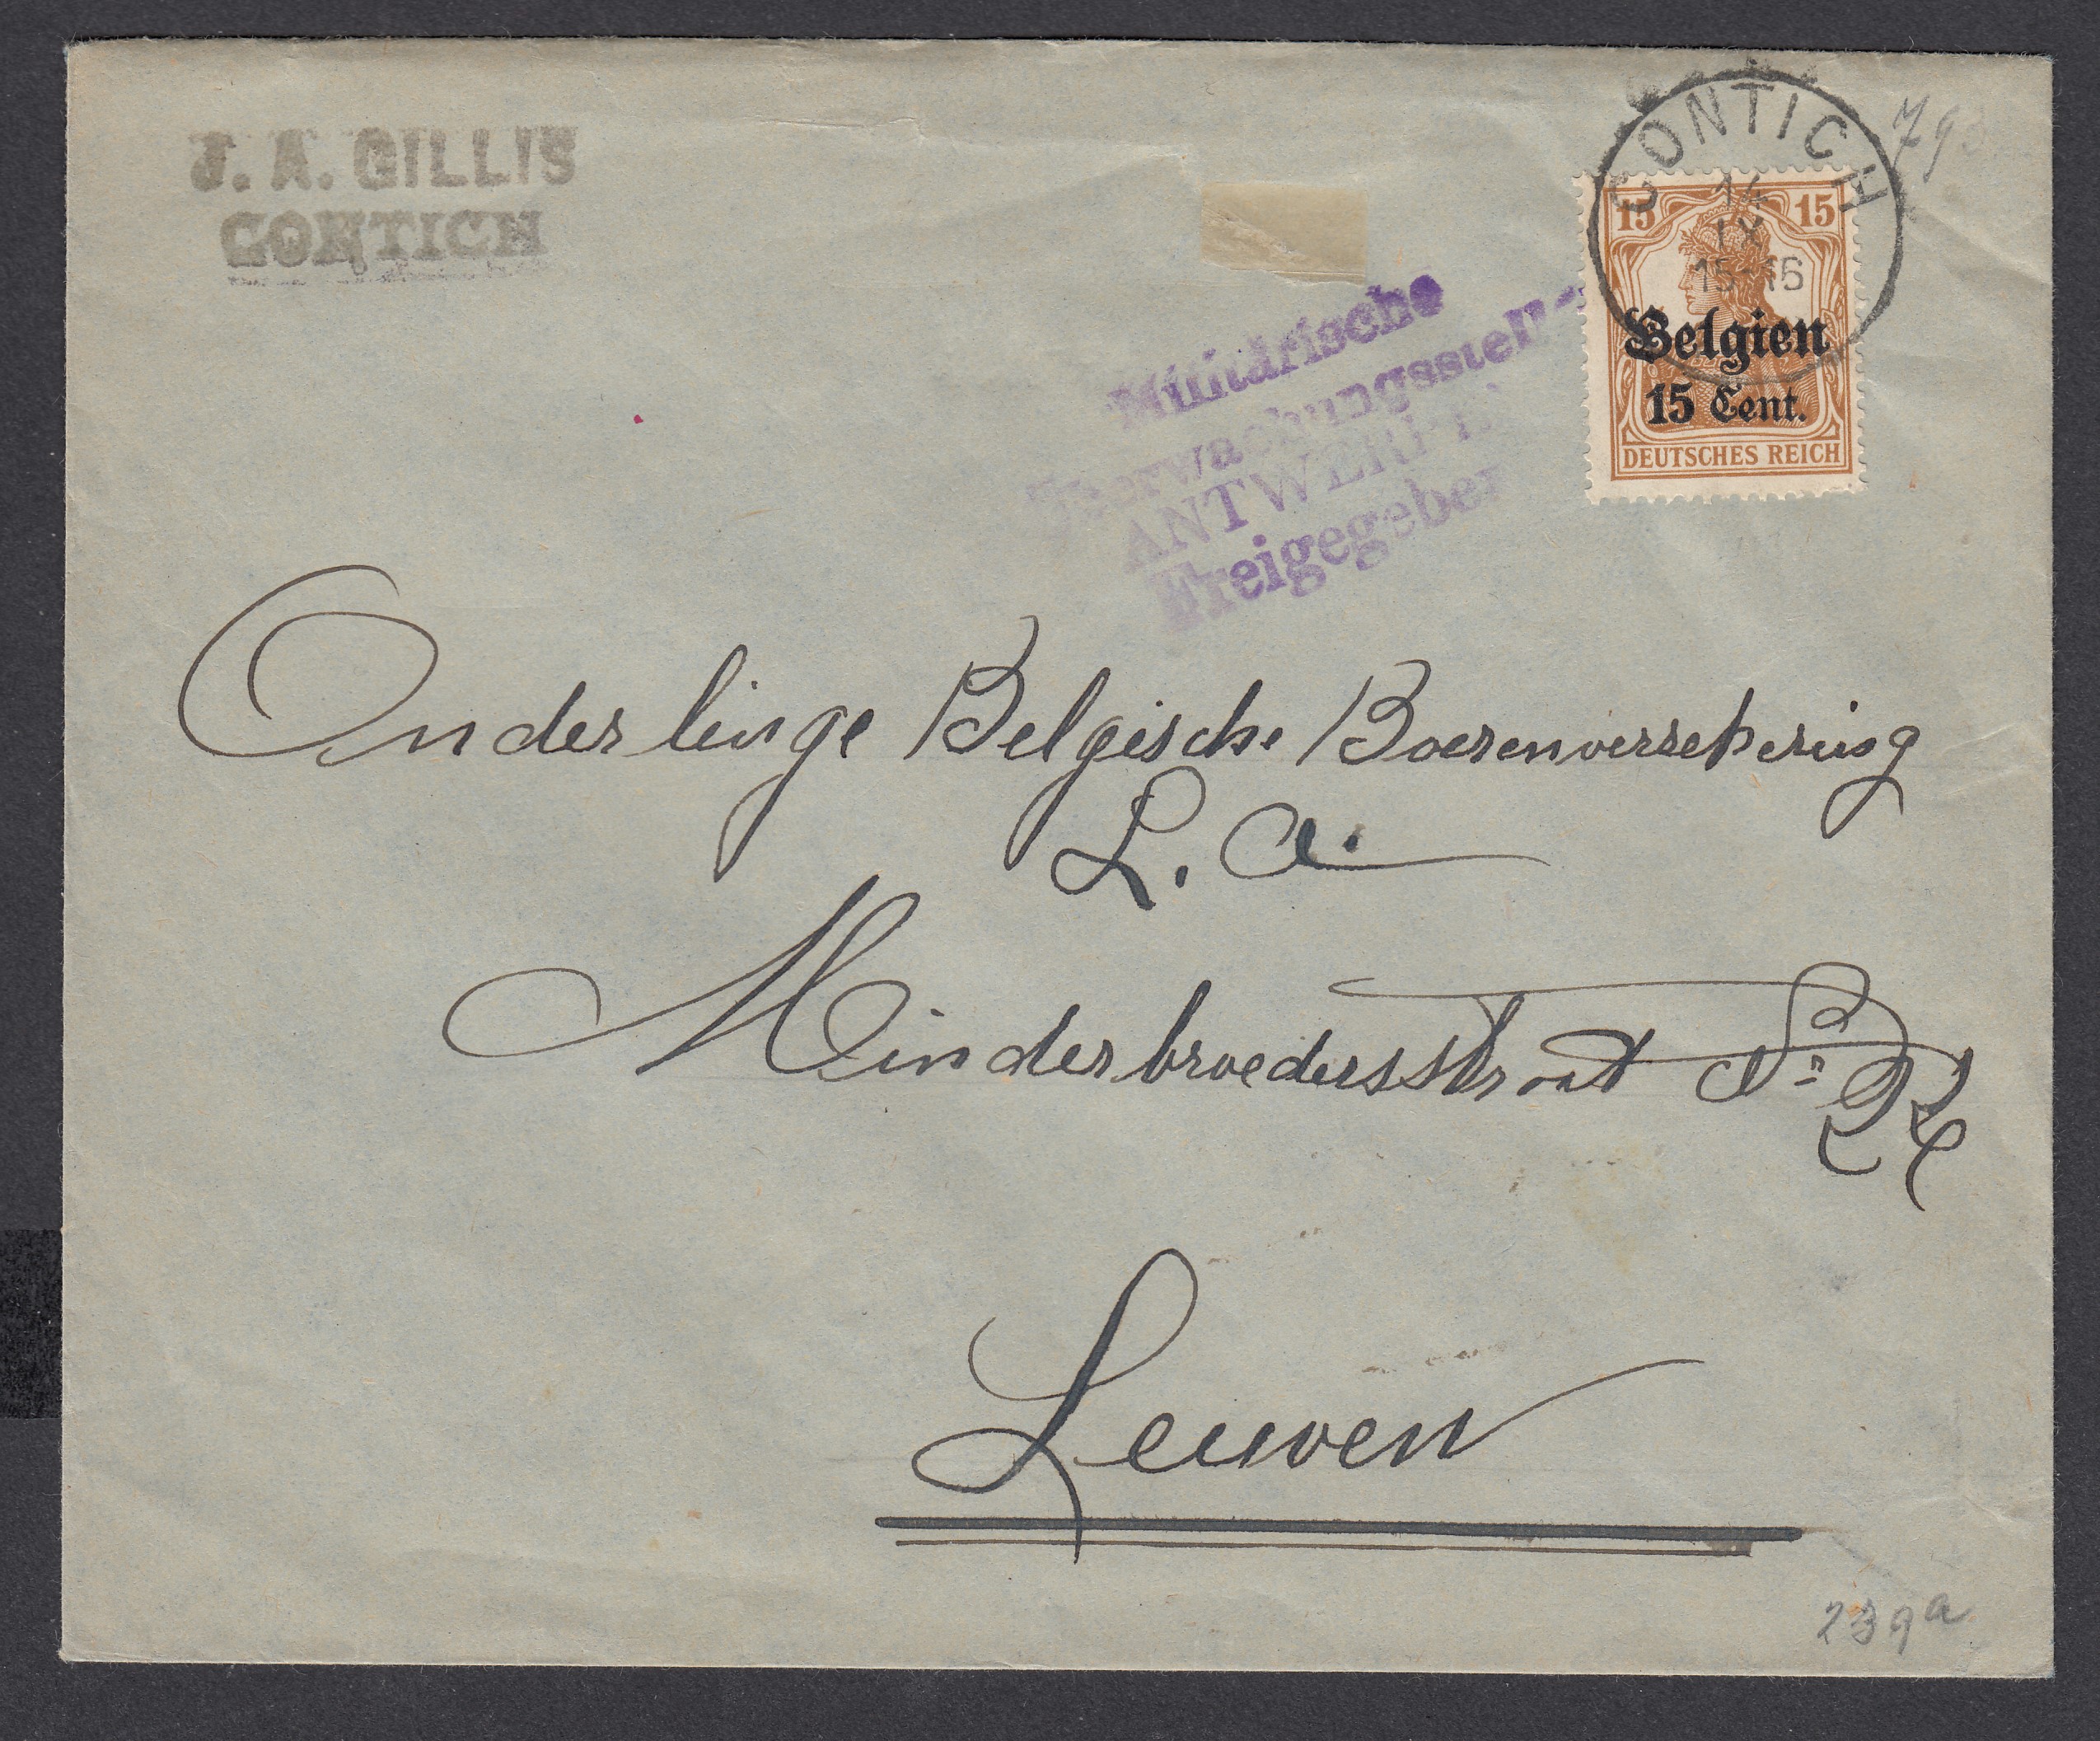 J. A. GILLIS
CONTICH
CONTICH
14
IX
15-16
15 15
Belgien
15 Cent.
DEUTSCHES REICH
Militärische
Überwachungsstelle
ANTWERPEN
Freigegeben
Onderlinge Belgische Boerenverzekering
L. A.
Minderbroedersstraat
Leuven
239a